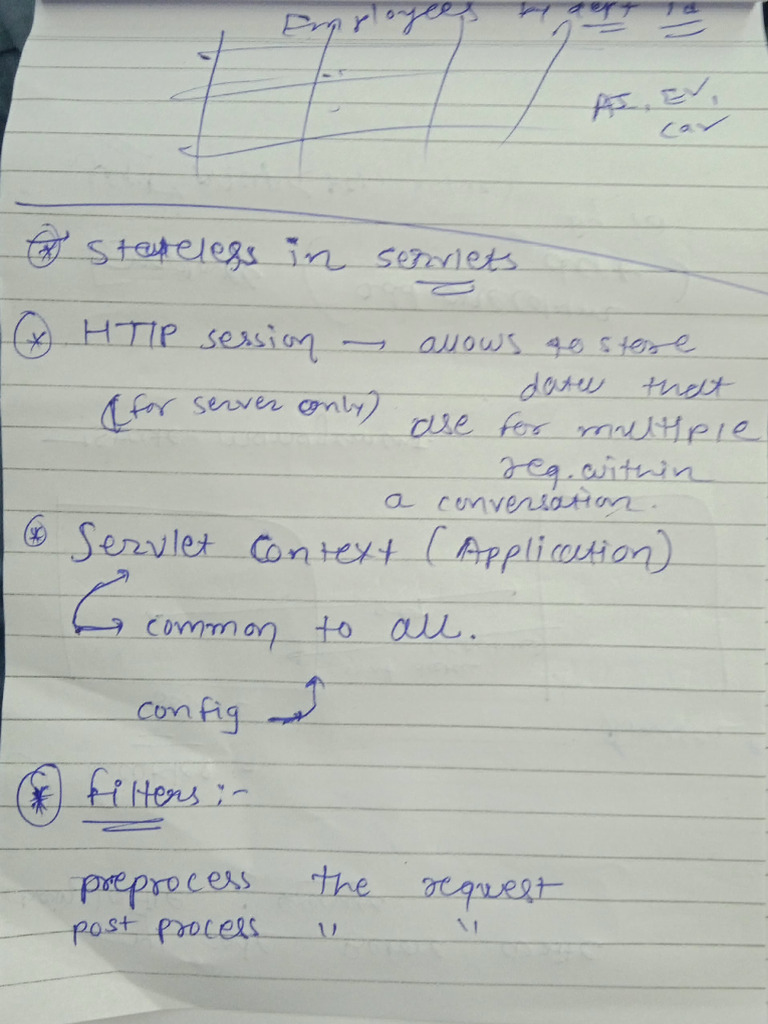 Employees by dept id
AI, EV,
car
* Stateless in servlets
* HTTP session → allows to store
data that
(for server only) are for multiple
req. within
a conversation.
* Servlet Context (Application)
→ common to all.
config
* filters :-
preprocess the request
post process " "